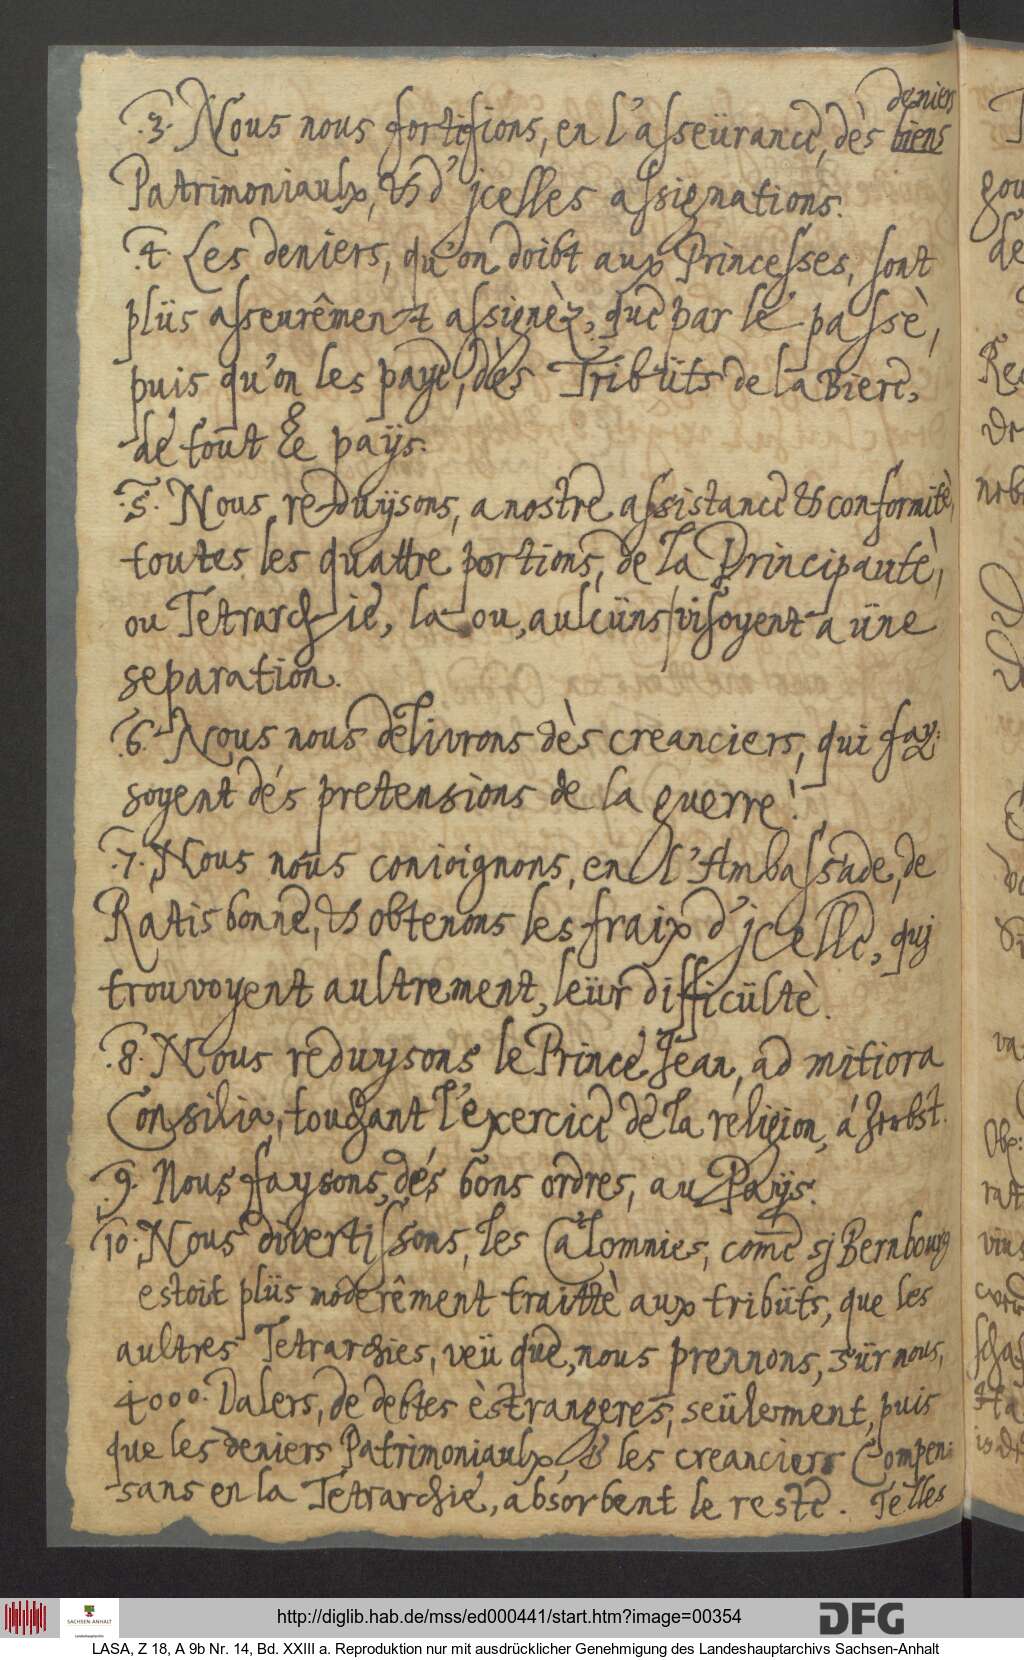 deniers
.3. Nous nous fortifions, en l'asseürance, dès biens
Patrimoniaulx, & d'jcelles assignations.
.4. Les deniers, qu'on doibt aux Princesses, sont
plüs asseurêment assignèz, que par le passè,
puis qu'on les paye, dès Tribüts de la Biere,
de tout le païs.
.5. Nous reduysons, a nostre assistance & conformitè,
toutes les quattre portions, de la Principautè,
ou Tetrarchie, la ou, aulcüns visoyent a üne
separation.
.6. Nous nous delivrons dès creanciers, qui fay:
soyent dés pretensions de la guerre!
.7. Nous nous conioignons, en l'Ambassade, de
Ratisbonne, & obtenons les fraix d'jcelle, quj
trouvoyent aultrement, leür difficültè.
.8. Nous reduysons le Prince Jean, ad mitiora
Consilia, touchant l'exercice de la religion, á Zerbst.
.9. Nous faysons, dés bons ordres, au Païs.
10. Nous divertissons, les Calomnies, com̃e sj Bernbourg
estoit plüs moderêment traittè aux tribüts, que les
aultres Tetrarchies, veü que, nous prennons, sür nous,
4000. Dalers, de debtes èstrangeres, seülement, puis
que les deniers Patrimoniaulx, & les creanciers Compen:
sans en la Tetrarchie, absorbent le reste. Telles
SACHSEN-ANHALT
Landeshauptarchiv
http://diglib.hab.de/mss/ed000441/start.htm?image=00354
DFG
LASA, Z 18, A 9b Nr. 14, Bd. XXIII a. Reproduktion nur mit ausdrücklicher Genehmigung des Landeshauptarchivs Sachsen-Anhalt